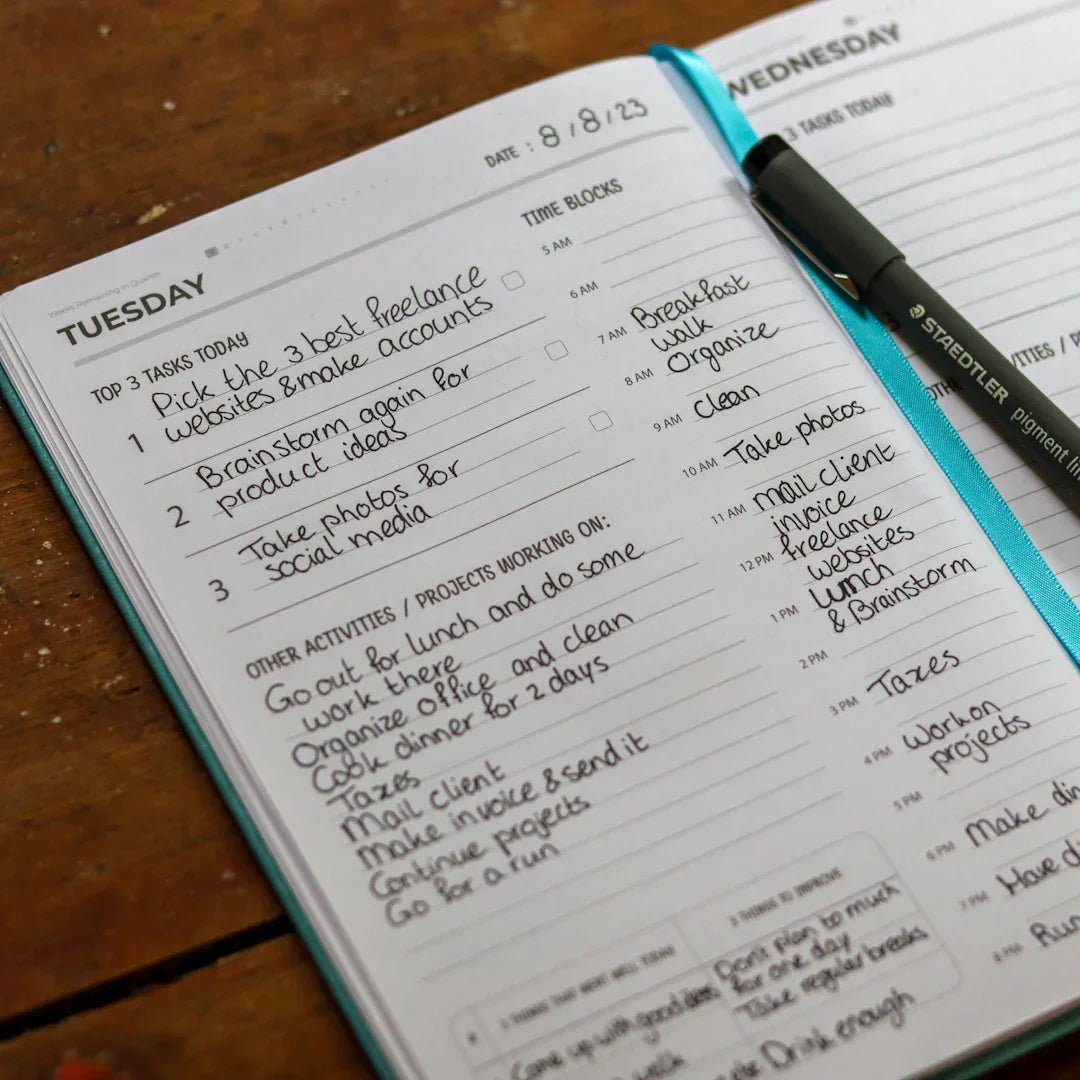 WEDNESDAY
3 TASKS TODAY
DATE : 8/8/23
Weeks Remaining in Quarter
TUESDAY
TOP 3 TASKS TODAY
1 Pick the 3 best freelance
websites & make accounts
2 Brainstorm again for
product ideas
3 Take photos for
social media
OTHER ACTIVITIES / PROJECTS WORKING ON:
Go out for lunch and do some
work there
Organize office and clean
Cook dinner for 2 days
Taxes
Mail client
Make invoice & send it
Continue projects
Go for a run
TIME BLOCKS
5 AM
6 AM
7 AM Breakfast
walk
8 AM Organize
9 AM Clean
10 AM Take photos
11 AM mail client
invoice
12 PM freelance
websites
1 PM lunch
& Brainstorm
2 PM
3 PM Taxes
4 PM Work on
projects
5 PM
6 PM Make
7 PM Have
8 PM
3 THINGS THAT WENT WELL TODAY
Come up with good
walk
3 THINGS TO IMPROVE
Don't plan to much
for one day
Take regular breaks
Drink enough
STAEDTLER pigment